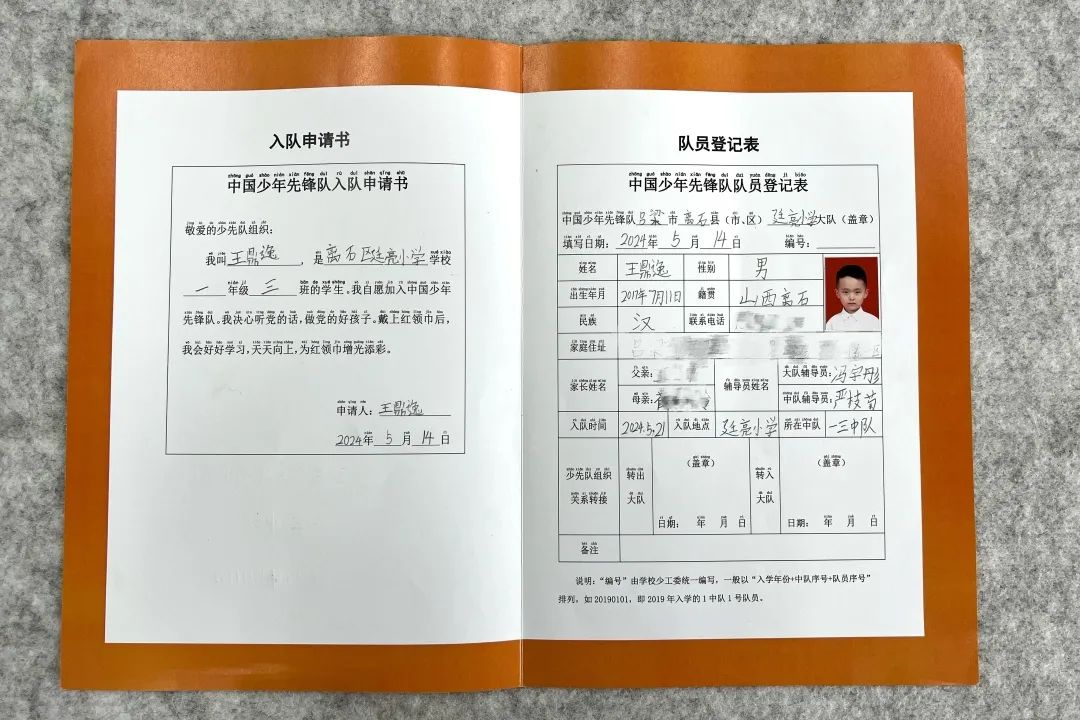 入队申请书
zhōng guó shào nián xiān fēng duì rù duì shēn qǐng shū
中国少年先锋队入队申请书
敬爱的少先队组织：
我叫王鼎逸，是离石区廷亮小学学校
一年级三班的学生。我自愿加入中国少年
先锋队。我决心听党的话，做党的好孩子。戴上红领巾后，
我会好好学习，天天向上，为红领巾增光添彩。
申请人：王鼎逸
2024年5月14日
队员登记表
zhōng guó shào nián xiān fēng duì duì yuán dēng jì biǎo
中国少年先锋队队员登记表
中国少年先锋队吕梁市离石县（市、区）廷亮小学大队（盖章）
填写日期：2024年5月14日 编号：
姓名 王鼎逸 性别 男
出生年月 2017年7月11日 籍贯 山西离石
民族 汉 联系电话
家庭住址
家长姓名 父亲： 辅导员姓名 大队辅导员：冯宇彤
母亲： 中队辅导员：严枝苗
入队时间 2024.5.21 入队地点 廷亮小学 所在中队 一三中队
少先队组织关系转接 转出大队 （盖章） 日期： 年 月 日 转入大队 （盖章） 日期： 年 月 日
备注
说明：“编号”由学校少工委统一编写，一般以“入学年份+中队序号+队员序号”
排列。如20190101，即2019年入学的1中队1号队员。